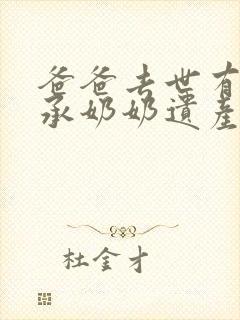 爸爸去世有
承奶奶遺產
杜金才